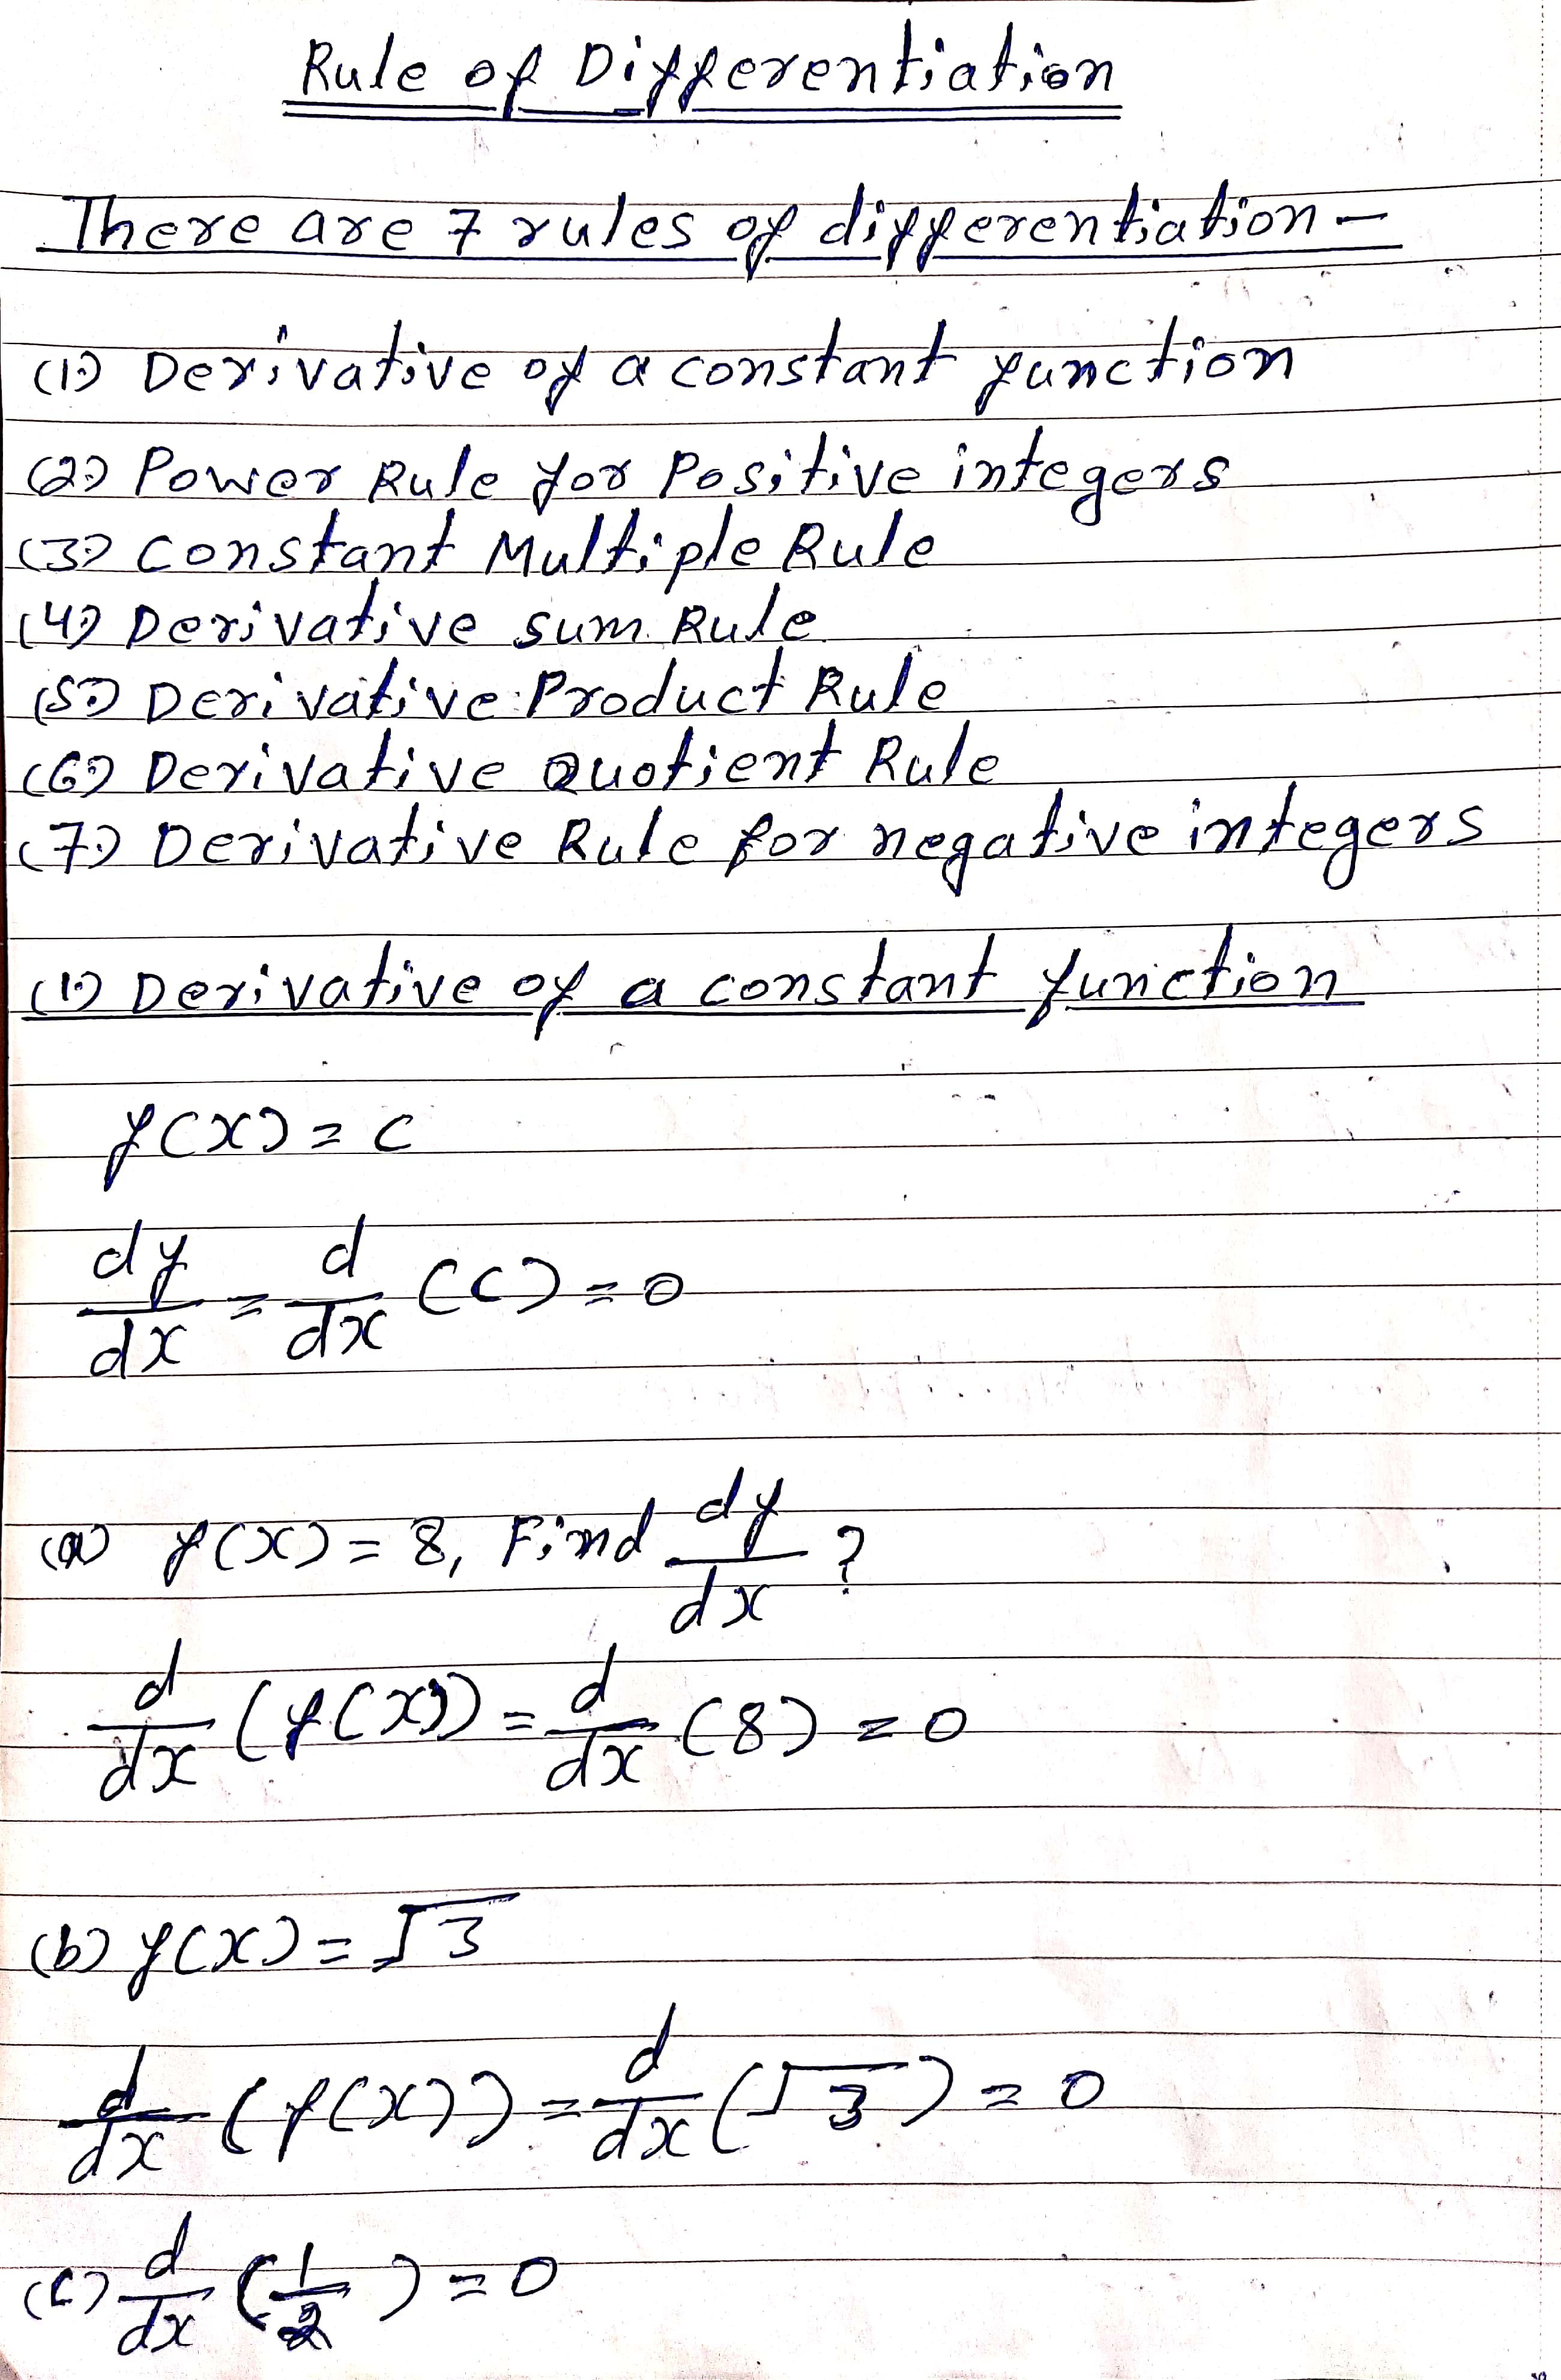 Rule of Differentiation
There are 7 rules of differentiation -
(1) Derivative of a constant function
(2) Power Rule for Positive integers
(3) Constant Multiple Rule
(4) Derivative sum Rule
(5) Derivative Product Rule
(6) Derivative Quotient Rule
(7) Derivative Rule for negative integers
(1) Derivative of a constant function
f(x) = c
df/dx = d/dx (c) = 0
(a) f(x) = 8, Find df/dx ?
d/dx (f(x)) = d/dx (8) = 0
(b) f(x) = √3
d/dx (f(x)) = d/dx (√3) = 0
(c) d/dx (1/2) = 0